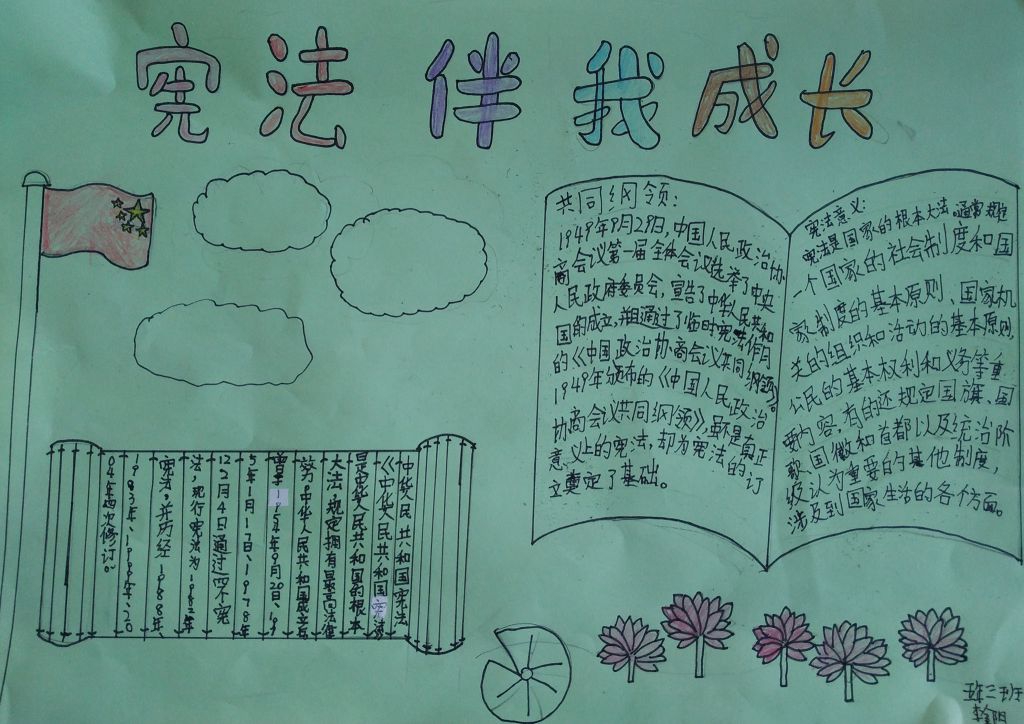 宪法伴我成长
共同纲领:
1949年9月29日,中国人民政治协
商会议第一届全体会议选举了中央
人民政府委员会,宣告了中华人民共和
国的成立,并且通过了临时宪法作用
的《中国政治协商会议共同纲领》。
1949年颁布的《中国人民政治
协商会议共同纲领》,虽不是真正
意义上的宪法,却为宪法的订
立奠定了基础。
宪法意义:
宪法是国家的根本大法。通常规定
一个国家的社会制度和国
家制度的基本原则、国家机
关的组织和活动的基本原则,
公民的基本权利和义务等重
要内容,有的还规定国旗、国
歌、国徽和首都以及统治阶
级认为重要的其他制度,
涉及到国家生活的各个方面。
中华人民共和国宪法
《中华人民共和国宪法》
是中华人民共和国的根本
大法,规定拥有最高法律
效力。中华人民共和国成立后
曾于1954年9月20日、19
5年1月17日、1978年
12月4日通过四个宪
法,现行宪法为1982年
宪法,并历经1988年、
1983年、1999年、20
04年四次修订。
班三班